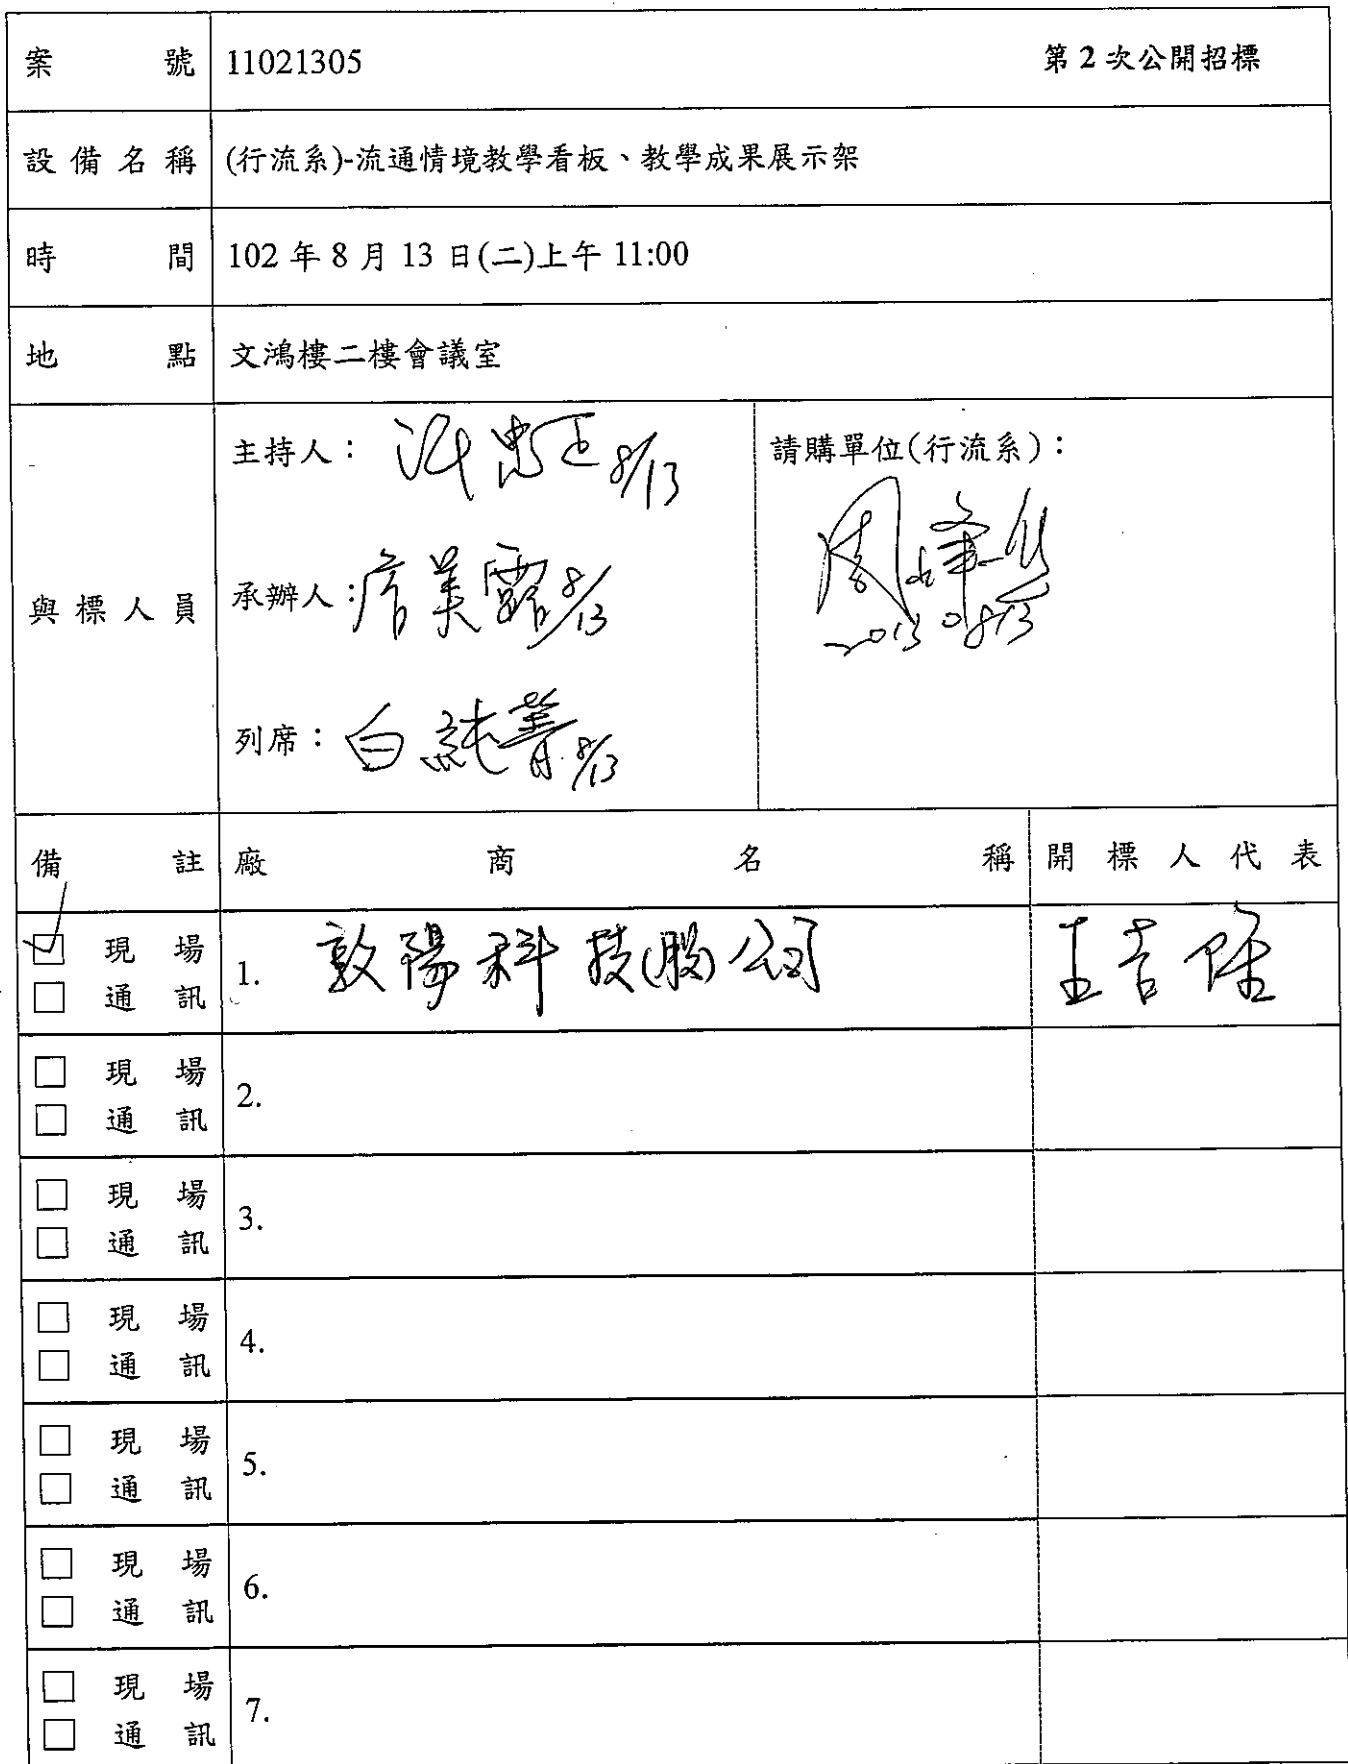 案號 11021305 第2次公開招標
設備名稱 (行流系)-流通情境教學看板、教學成果展示架
時間 102年8月13日(二)上午11:00
地點 文鴻樓二樓會議室
與標人員
主持人: 忠 8/13
請購單位(行流系):
周 2013 08/13
承辦人: 詹美露 8/13
列席: 白純菁 8/13
備註 廠商名稱 開標人代表
☑ 現場
□ 通訊
1. 敦陽科技(股)公司 王吉
□ 現場
□ 通訊
2.
□ 現場
□ 通訊
3.
□ 現場
□ 通訊
4.
□ 現場
□ 通訊
5.
□ 現場
□ 通訊
6.
□ 現場
□ 通訊
7.